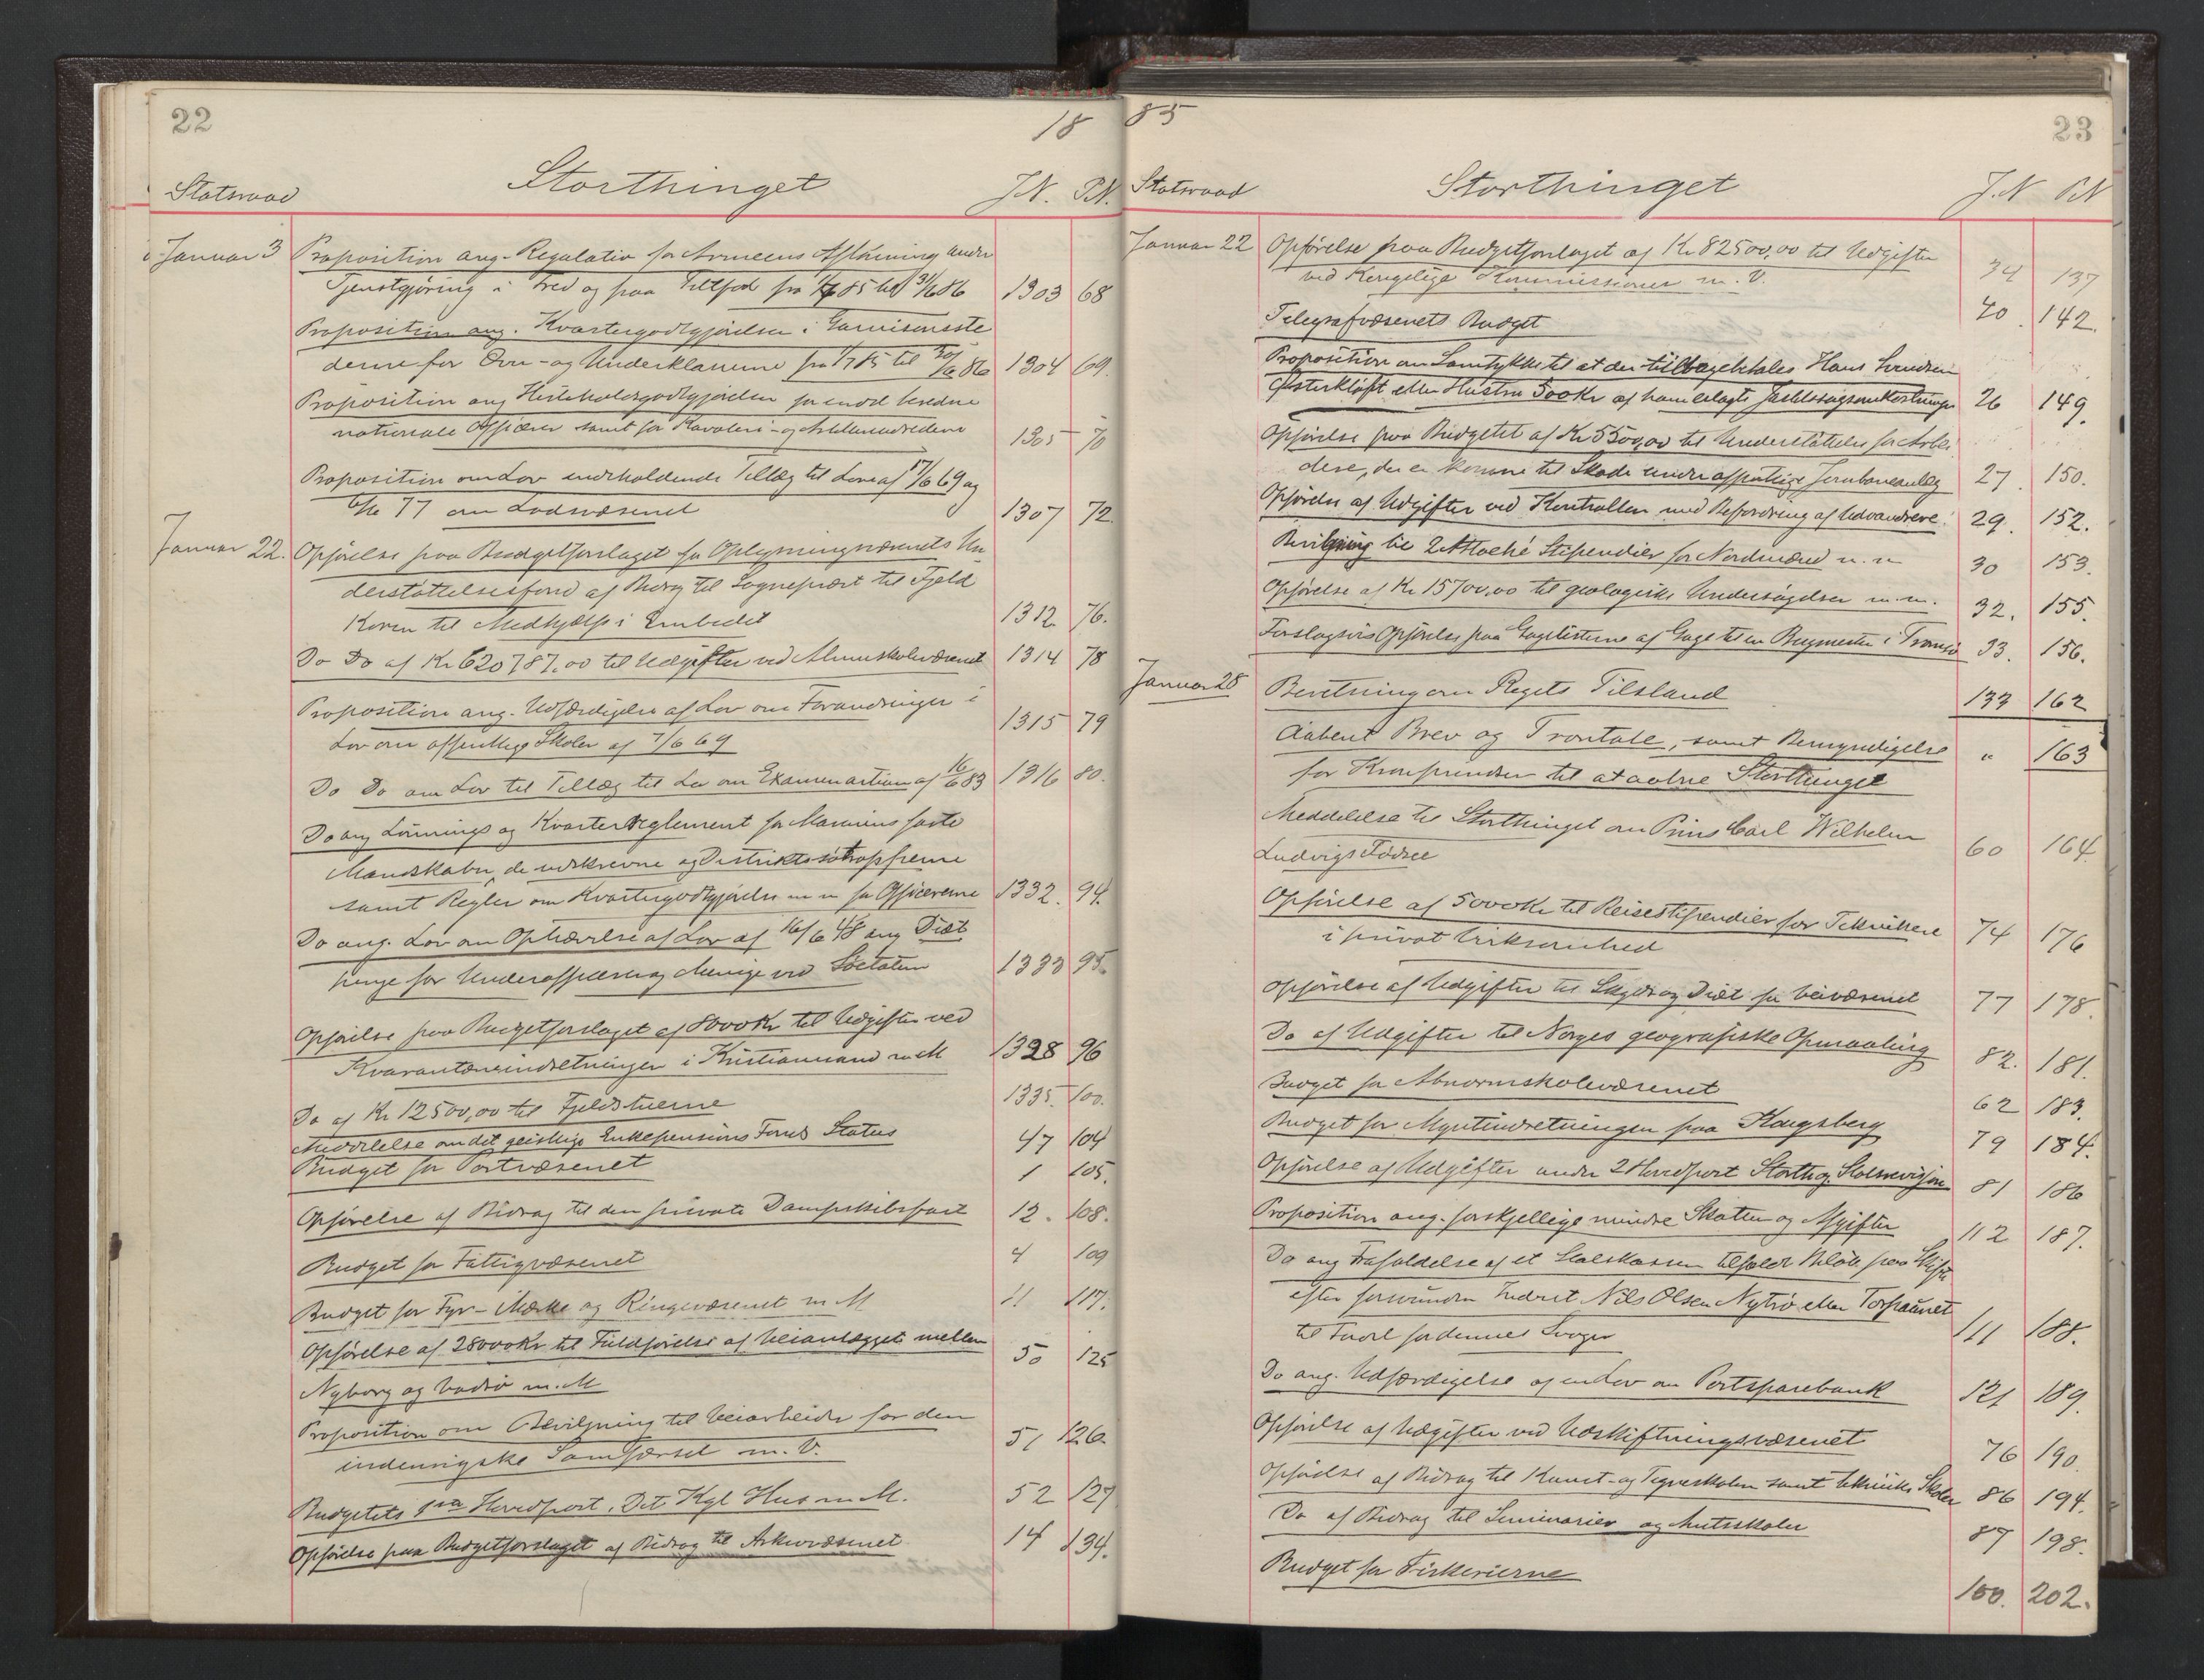 22
18
Statsraad
Storthinget
J.N. P.N.
Januar 3 Proposition ang. Regulativ for Armeens Aflønning under
Tjenstgjøring i Fred og paa Feltfod fra 1/7 85 til 31/6 86 1303 68
Proposition ang. Kvartergodtgjørelser i Garnisonsste
derne for Over- og Underklasserne fra 1/7 85 til 30/6 86 1304 69.
Proposition ang Hesteholdsgodtgjørelser for endel beredne
nationale Officerer samt for Kavaleri- og 1305 70
Proposition om Lov indeholdende Tillæg til Love af 17/6 69 og
6/6 77 om Lodsvæsenet 1307 72.
Januar 22. Opførelse paa Budgetforslaget for Oplysningsvæsenets Un
derstøttelsesfond af Bidrag til Sogneprest til Fjeld
Koren til Medhjælp i Embedet 1312 76.
Do Do af Kr 620787.00 til Udgifter ved Almueskolevæsenet 1314 78
Proposition ang. Udfærdigelse af Lov om Forandringer i
Lov om offentlige Skoler af 7/6 69 1315 79
Do Do om Lov til Tillæg til Lov om Examen artium af 16/6 83 1316 80.
Do ang Lønnings og Kvarterreglement for Marinens faste
Mandskaber, de udskrevne og Distriktssøtropperne
samt Regler om Kvartergodtgjørelse m m for Officererne 1332. 94.
Do ang. Lov om Ophævelse af Lov af 16/6 48 ang Diæt
penge for Underofficerer og Menige ved Søetaten 1333 95.
Opførelse paa Budgetforslaget af 8000 Kr til Udgifter ved
Kvarantæneindretningen i Kristianssand m M 1328 96
Do af Kr 12500,00 til Fjeldstuerne 1335. 100.
Meddelelse om det geistlige Enkepensions Fonds Status 47 104
Budget for Postvæsenet 1 105.
Opførelse af Bidrag til den private Dampskibsfart 12. 108.
Budget for Fattigvæsenet 4 109
Budget for Fyr- Mærke og Ringevæsenet m M 11 117.
Opførelse af 28000 Kr til Fuldførelse af Veianlægget mellem
Nyborg og Vadsø m.M 50 125
Proposition om Bevilgning til Veiarbeider for den
indenrigske Samfærsel m.V. 51 126.
Budgetets Hovedpost. Det Kgl Hus m M. 52 127
Opførelse paa Budgetforslaget af Bidrag til Arkivvæsenet 14 134.
85
23
Statsraad
Storthinget
J.N P.N
Januar 22 Opførelse paa Budgetforslaget af Kr 82500,00 til Udgifter
ved Kongelige Kommissioner m.V. 34 137
Telegrafvæsenets Budget 40. 142.
Proposition om Samtykke til at der tilbagebetales Hans
eller Hustru 500 Kr af ham erlagte 26 149.
Opførelse paa Budgettet af Kr 5500,00 til Understøttelse for Arbei
dere, der er komne til Skade under offentlige Jernbaneanlæg 27. 150.
Opførelse af Udgifter ved Kontrollen med Befordring af Udvandrere. 29. 152.
Bevilgning til 2 Attaché Stipendier for Nordmænd m. m 30 153.
Opførelse af Kr 15700,00 til geologiske Undersøgelser m.m. 32. 155.
Forslagsvis Opførelse paa Gagelisterne af Gage til en Byg­mester i Tromsø 33. 156.
Januar 28 Beretning om Rigets Tilstand 133 162
Aabent Brev og Trontale, samt Bemyndigelse
for Kronprindsen til at aabne Storthinget " 163
Meddelelse til Storthinget om Prins Carl Wilhelm
Ludvigs Fødsel 60 164
Opførelse af 5000 Kr til Reisestipendier for Teknikere
i privat Virksomhed 74 176
Opførelse af Udgifter til Skyds og Diæt for Veivæsenet 77 178.
Do af Udgifter til Norges geografiske Opmaaling 82. 181.
Budget for Abnormskolevæsenet 62 183.
Budget for Myntindretningen paa Kongsberg 79 184.
Opførelse af Udgifter under 2 Hovedpost Storth. og Statsrevisjon 81 186
Proposition ang. forskjellige mindre Skatter og Afgifter 112 187.
Do ang Frafaldelse af et Statskassen tilfaldt Beløb paa Skifte
efter forsvundne Indrest Nils Olsen Nytrø eller Torpaunet
til Fordel for dennes Svoger 111 188.
Do ang. Udfærdigelse af en Lov om Postsparebank 121 189.
Opførelse af Udgifter ved Udskiftningsvæsenet 76 190.
Opførelse af Bidrag til Kunst- og Tegneskolen samt tekniske Skoler 86 194.
Do af Bidrag til Seminarier og Amtsskoler 87 198.
Budget for Fiskerierne 100. 202.